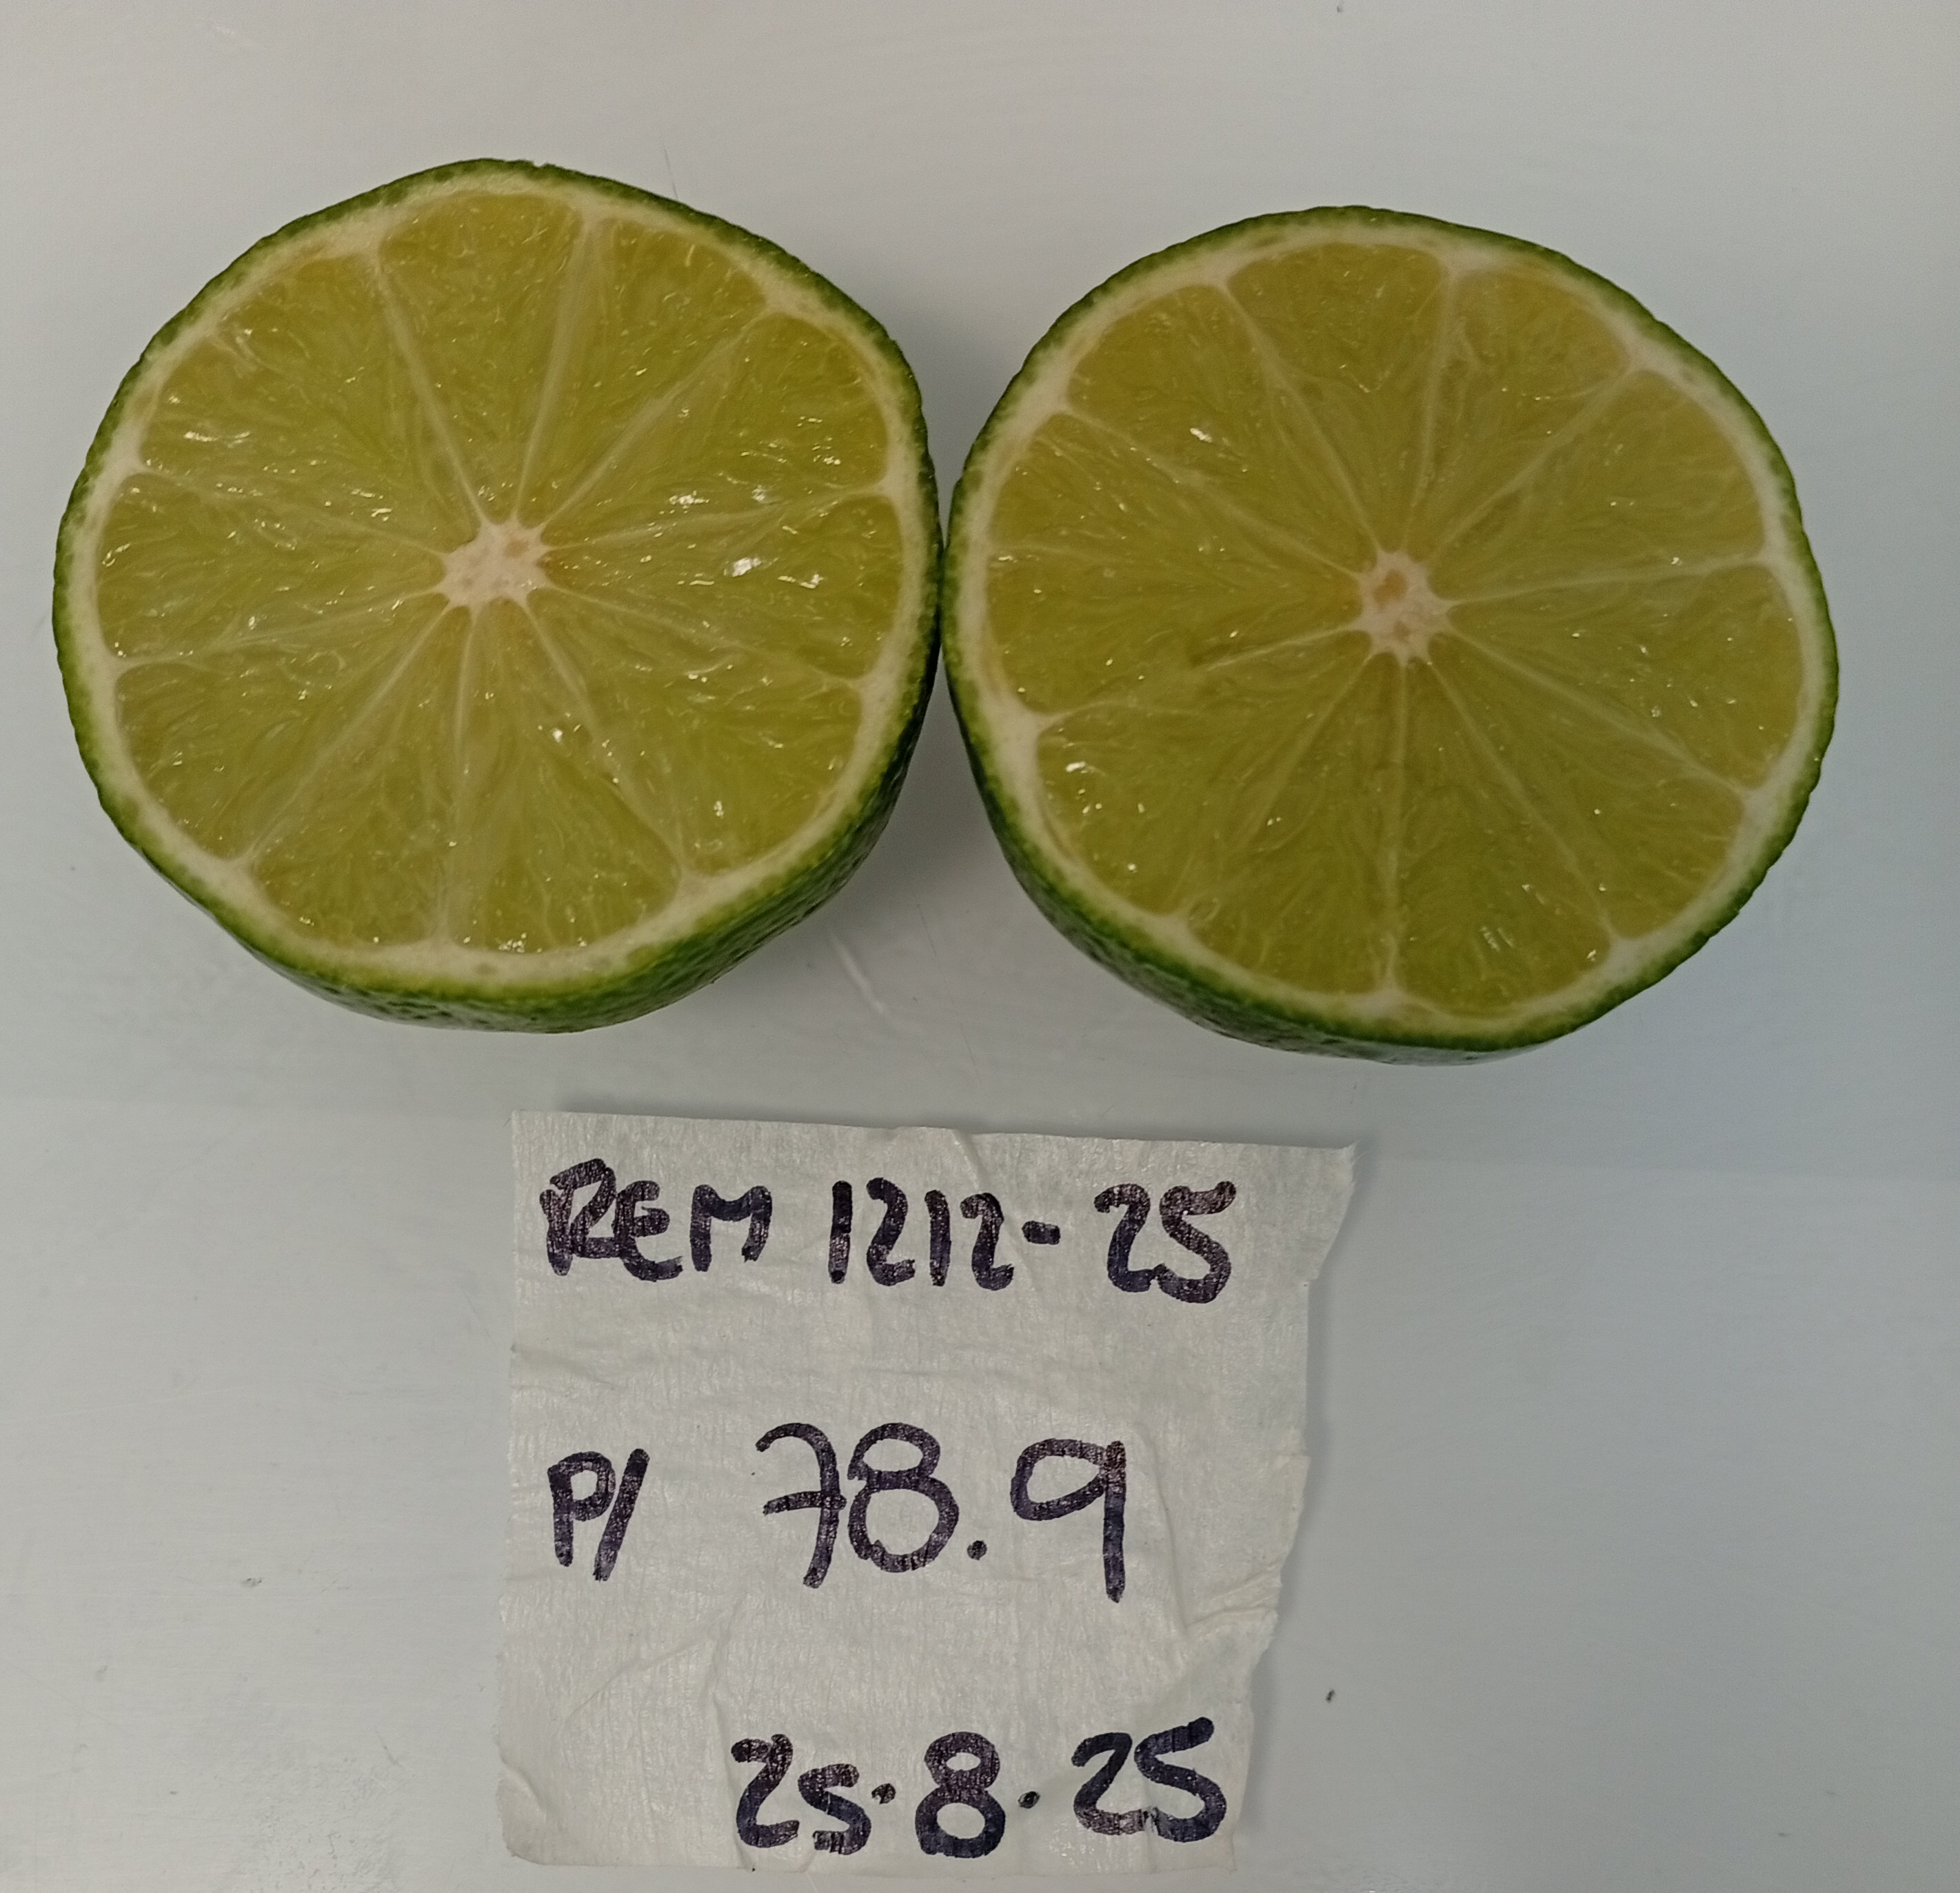 REM 1212-25
P/ 78.9
25.8.25